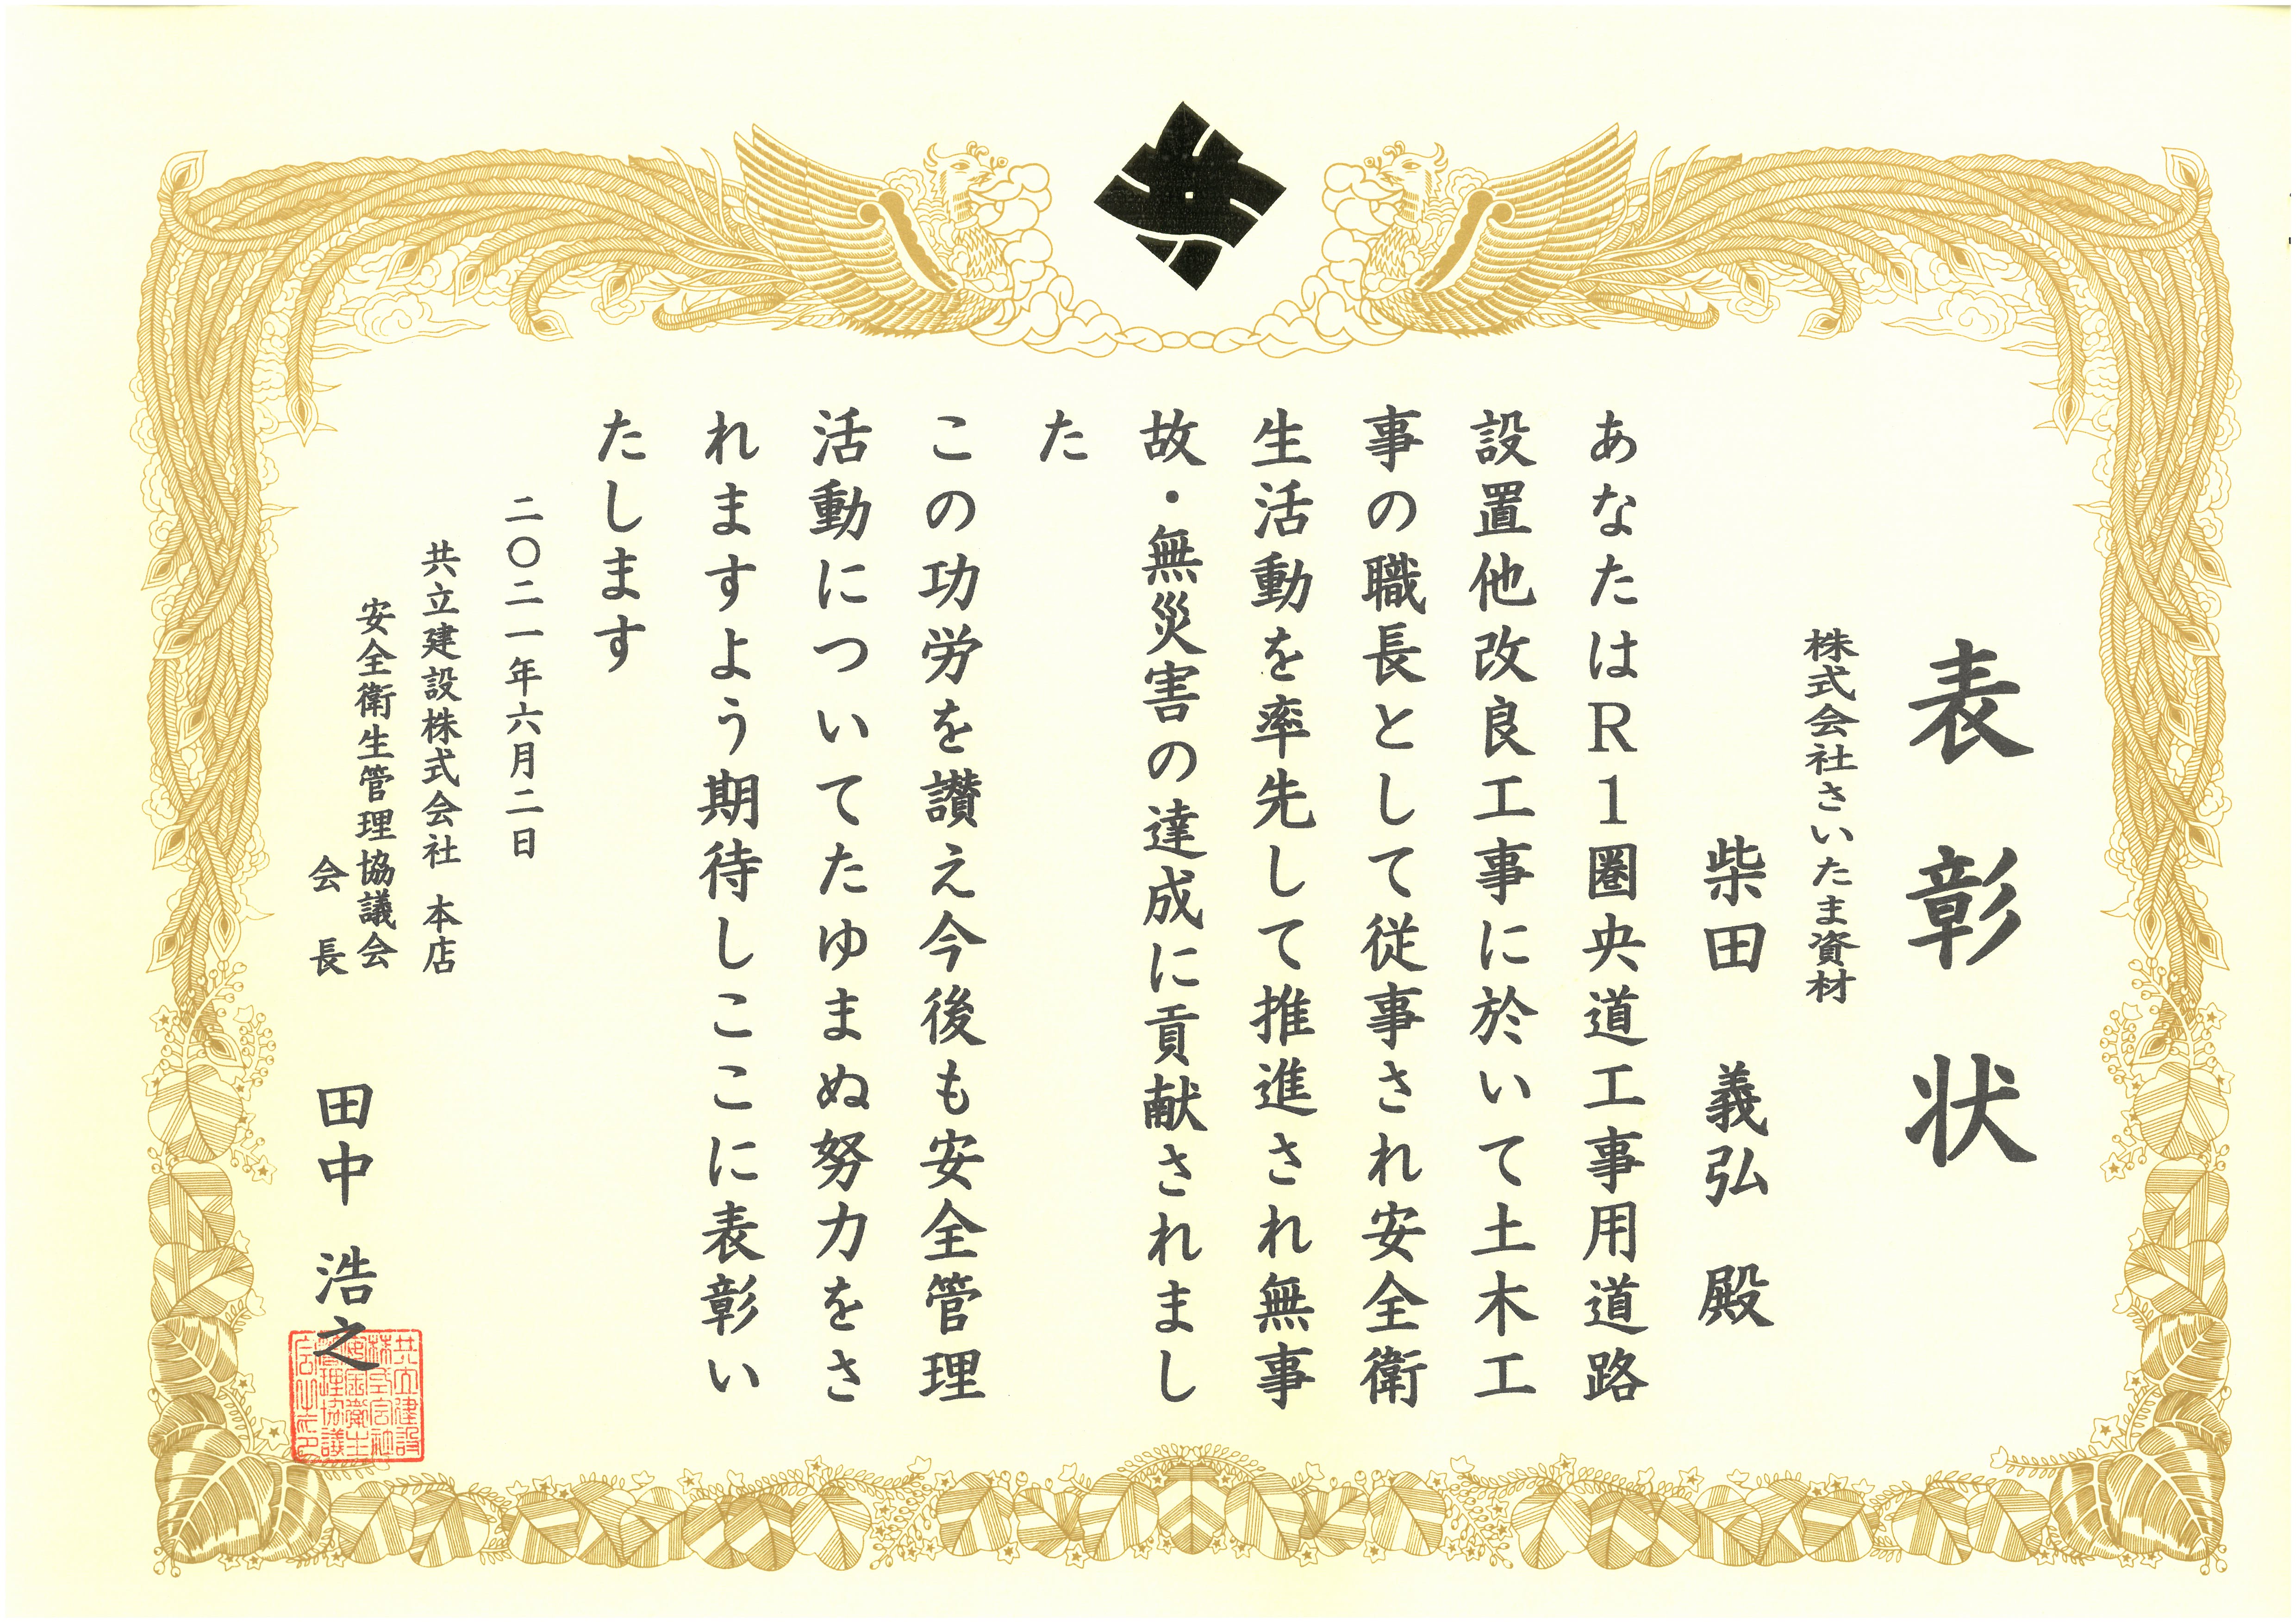 表彰状
株式会社さいたま資材
柴田 義弘 殿
あなたはR1圏央道工事用道路
設置他改良工事に於いて土木工
事の職長として従事され安全衛
生活動を率先して推進され無事
故・無災害の達成に貢献されまし
た
この功労を讃え今後も安全管理
活動についてたゆまぬ努力をさ
れますよう期待しここに表彰い
たします
二〇二一年六月二日
共立建設株式会社 本店
安全衛生管理協議会
会長 田中 浩之
共立建設
株式会社
安全衛生
管理協議
会之印